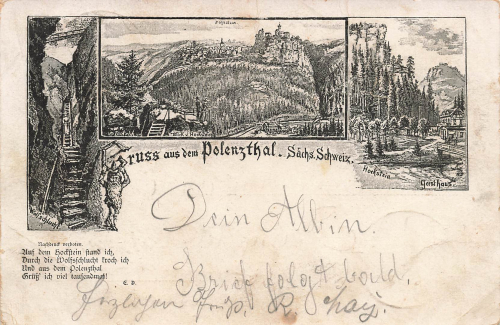 Hohnstein.
Wolfsschlucht
Hockstein.
Gruss aus dem Polenzthal. Sächs. Schweiz.
Nachdruck verboten.
Auf dem Hockstein stand ich,
Durch die Wolfsschlucht kroch ich
Und aus dem Polenzthal
Grüß ich viel tausendmal!
E. D.
Dein Albin.
Brief folgt bald.
Herzlichen